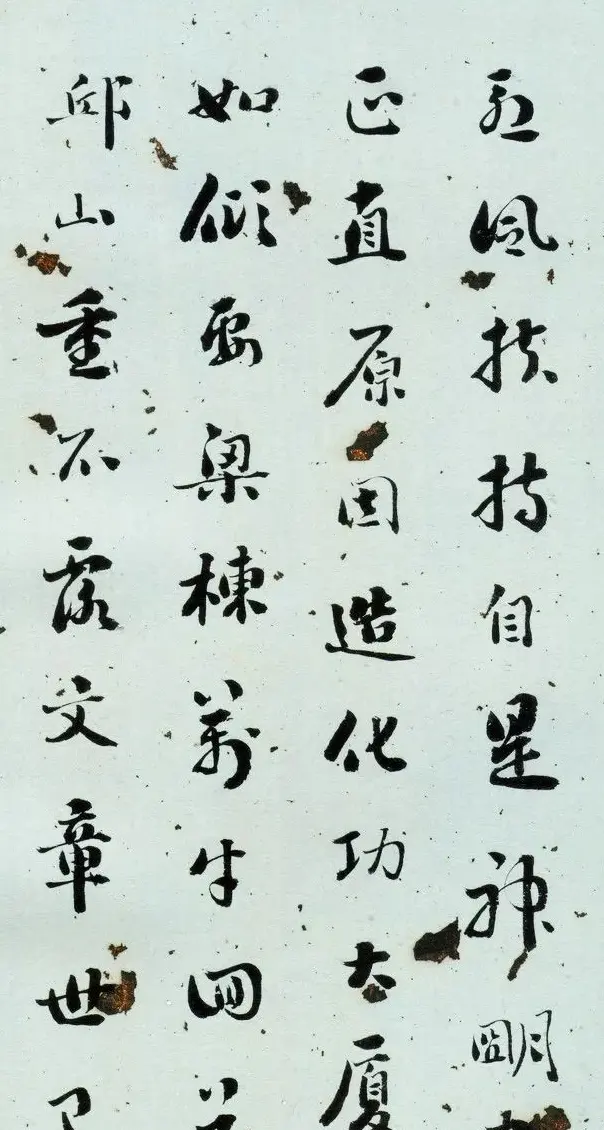 烈風扶持自是神明
正直原因造化功大廈
如傾要梁棟萬牛回
邱山重不露文章世